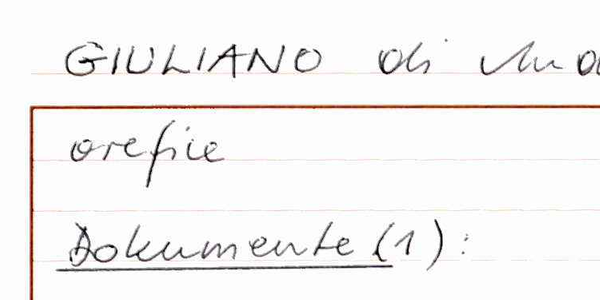 GIULIANO di
orefice
Dokumente (1):